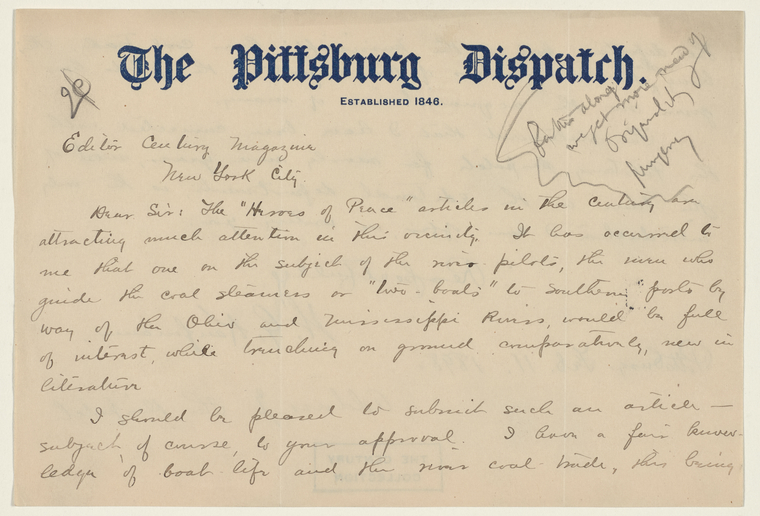 The Pittsburg Dispatch.
ESTABLISHED 1846.
Editor Century Magazine
New York City.
Dear Sir: The "Heroes of Peace" articles in the Century are
attracting much attention in this vicinity. It has occurred to
me that one on the subject of the river pilots, the men who
guide the coal steamers or "tow-boats" to Southern ports by
way of the Ohio and Mississippi Rivers, would be full
of interest, while trenching on ground comparatively new in
literature
I should be pleased to submit such an article —
subject, of course, to your approval. I have a fair know-
ledge of boat life and the river coal trade, this being